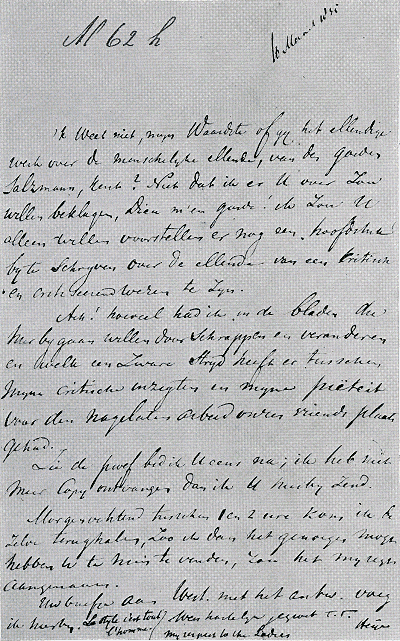 M 62 h
10 Maart
'k Weet niet, mijn Waardste of gij het ellendige
werk over de menschelyke ellende, van des goeden
Salzmans, kent? Niet dat ik er U over Zou
willen beklagen, Dieu m'en garde! ik Zou U
alleen willen voorstellen er nog een hoofdstuk
by te Schryven over de ellende van een Critisch
en wezen te Zyn.
Ach! hoeveel had ik in de bladen die
hier bygaan willen doorschrappen en veranderen
en welk een Zware Stryd heeft er tusschen
myne critische inzigten en myne piëteit
voor den nagelaten arbeid onzes vriends plaats
gehad.
Zie de proef bid ik U eens na; ik heb niet
meer Copy ontvangen dan ik U hierby Zend.
Morgenochtend tusschen 1 en 2 ure kom ik ze
Zelve terughalen, Zoo ik dan het genoegen mogt
hebben U te huis te vinden, Zou het my zeer
aangenaam.
Uw broeder aan West. met het antw. voeg
ik hierby. Le style c'est tout
l'homme) Wees hartelyk gegroet T.T.
my respect to the Ladies